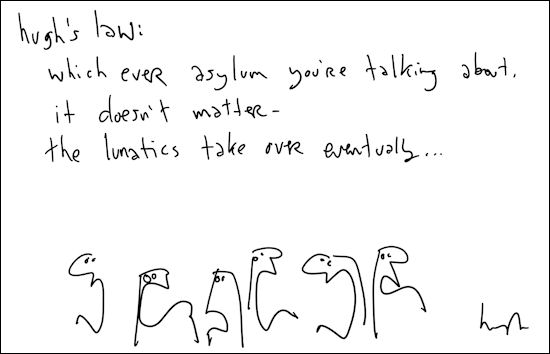 hugh's law:
which ever asylum you're talking about,
it doesn't matter-
the lunatics take over eventually...
hugh